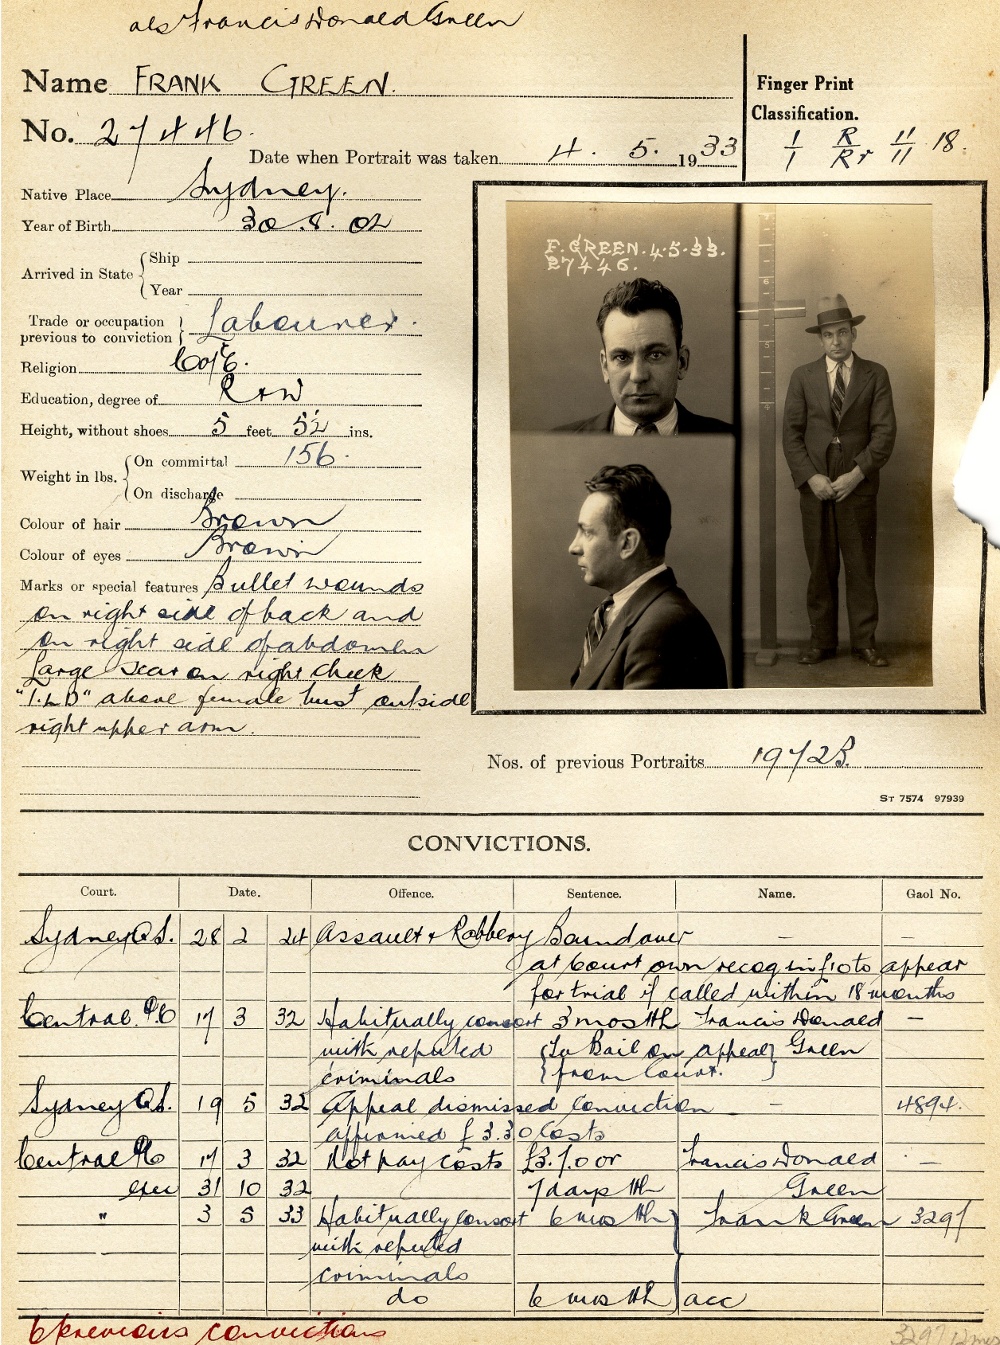 als Francis Donald Green
Name FRANK GREEN.
No. 27446.
Date when Portrait was taken 4. 5. 1933
Finger Print
Classification.
1/1 R/Rr 11/11 18.
Native Place Sydney.
Year of Birth 30.8.02
Arrived in State { Ship
Year
Trade or occupation previous to conviction } Labourer.
Religion C of E.
Education, degree of R & W
Height, without shoes 5 feet 5½ ins.
Weight in lbs. { On committal 156.
On discharge
Colour of hair Brown
Colour of eyes Brown
Marks or special features Bullet wounds
on right side of back and
on right side of abdomen
Large scar on right cheek
"I.L.D" above female bust outside
right upper arm.
F. GREEN. 4.5.33.
27446.
6
5
4
Nos. of previous Portraits 1972B.
ST 7574 97939
CONVICTIONS.
Court. Date. Offence. Sentence. Name. Gaol No.
Sydney Q.S. 28 2 24 Assault & Robbery Bound over —
at Court own recog in £10 to appear
for trial if called within 18 months
Central P.C 17 3 32 Habitually consort 3 mos HL Francis Donald —
with reputed {To Bail on appeal} Green
criminals {from Court. }
Sydney Q.S. 19 5 32 Appeal dismissed conviction — 4894.
affirmed £3.3.0 Costs
Central PC 17 3 32 Not pay costs £3.7.0 or Francis Donald —
exec 31 10 32 7 days HL Green
" 3 5 33 Habitually consort 6 mos HL } Frank Green 3297
with reputed
criminals
do 6 mos HL } acc
6 previous convictions
3297 12 mos